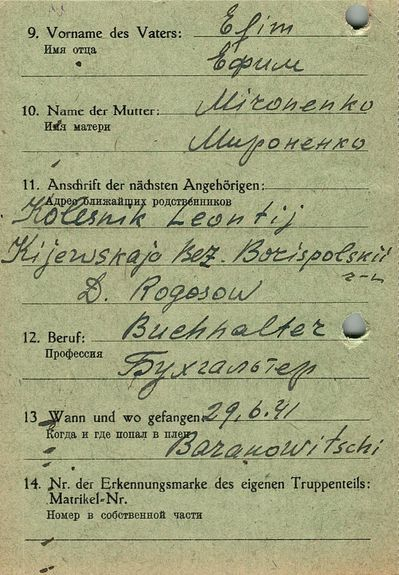 9. Vorname des Vaters: Efim
Имя отца
Ефим
10. Name der Mutter: Mironenko
Имя матери
Мироненко
11. Anschrift der nächsten Angehörigen:
Адрес ближайших родственников
Kolesnik Leontij
Kijewskaja Bez. Borispolskii
D. Rogosow
12. Beruf: Buchhalter
Профессия
Бухгалтер
13 Wann und wo gefangen 29.6.41
Когда и где попал в плен
Baranowitschi
14. Nr. der Erkennungsmarke des eigenen Truppenteils:
Matrikel-Nr.
Номер в собственной части